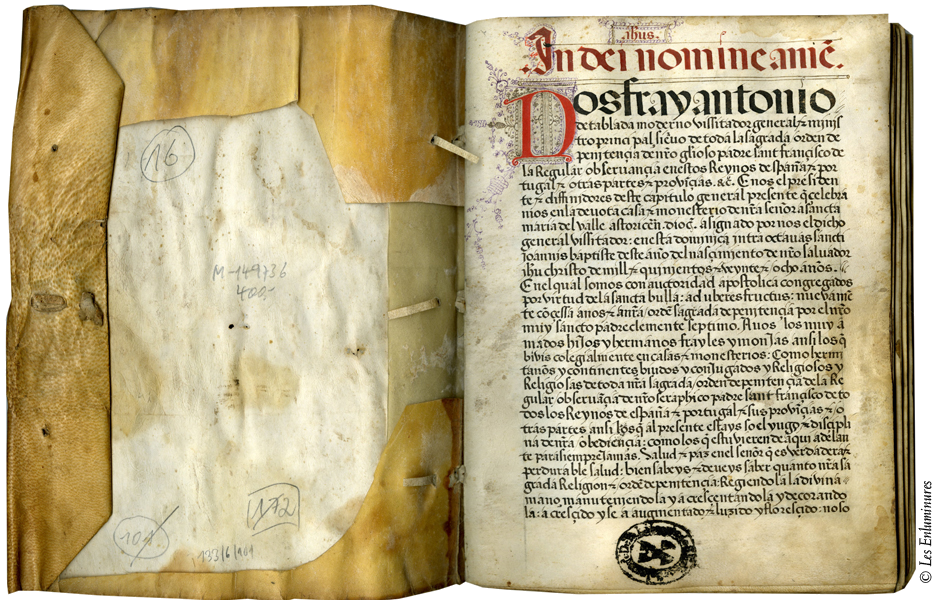 16
M-149736
400,-
172
101
133/6/1901
ihus.
.In dei nomine amē.
Nos fray antonio
de tablada moderno vissitador general & minis
tro principal, sieruo de toda la sagrada orden de
penitençia de nr̄o gl̄ioso padre sant françisco de
la Regular obseruançia en estos Reynos despaña & por
tugal & otras partes & prouīçias. &c̄. E nos el presiden
te & diffinidores deste capitulo general presente q̄ celebra
mos en la deuota casa & monesterio de nr̄a señora sancta
maria del valle astoricēn. dioc̄. asignado por nos el dicho
general vissitador: en esta dominica intra octauas sancti
Joannis baptiste deste año del nasçimento de nr̄o saluador
ihu christo de mill & quinientos & veynte & ocho años.
En el qual somos con auctoridad apostolica congregados
por virtud de la sancta bulla: ad uberes fructus: nueuamē
te cōçessa a nos & a nr̄a ordē sagrada de penitençia por el nr̄o
muy sancto padre clemente septimo. A uos los muy a
mados hijos y hermanos frayles y monjas ansi los q̄
biuis colegialmente en casas & monesterios: Como hermi
taños y continentes, biudos y conjugados y Religiosos y
Religiosas de toda nr̄a sagrada orden de penitençia de la Re
gular obseruāçia de nr̄o seraphico padre sant françisco de to
dos los Reynos de españa & portugal & sus prouīçias & o
tras partes ansi los q̄ al presente estays so el yugo & discipli
na de nr̄a obediençia: como los q̄ estuuieren de aqui adelan
te para siempre Jamas. Salud & paz en el señor q̄ es verdadera &
perdurable salud: bien sabeys & deueys saber quanto nr̄a sa
grada Religion & ordē de penitençia: Regiendola la diuina
mano, manuteniendola y acresçentandola y decorando
la: a cresçido y se a augmentado & luzido y floresçido: no so
© Les Enluminures